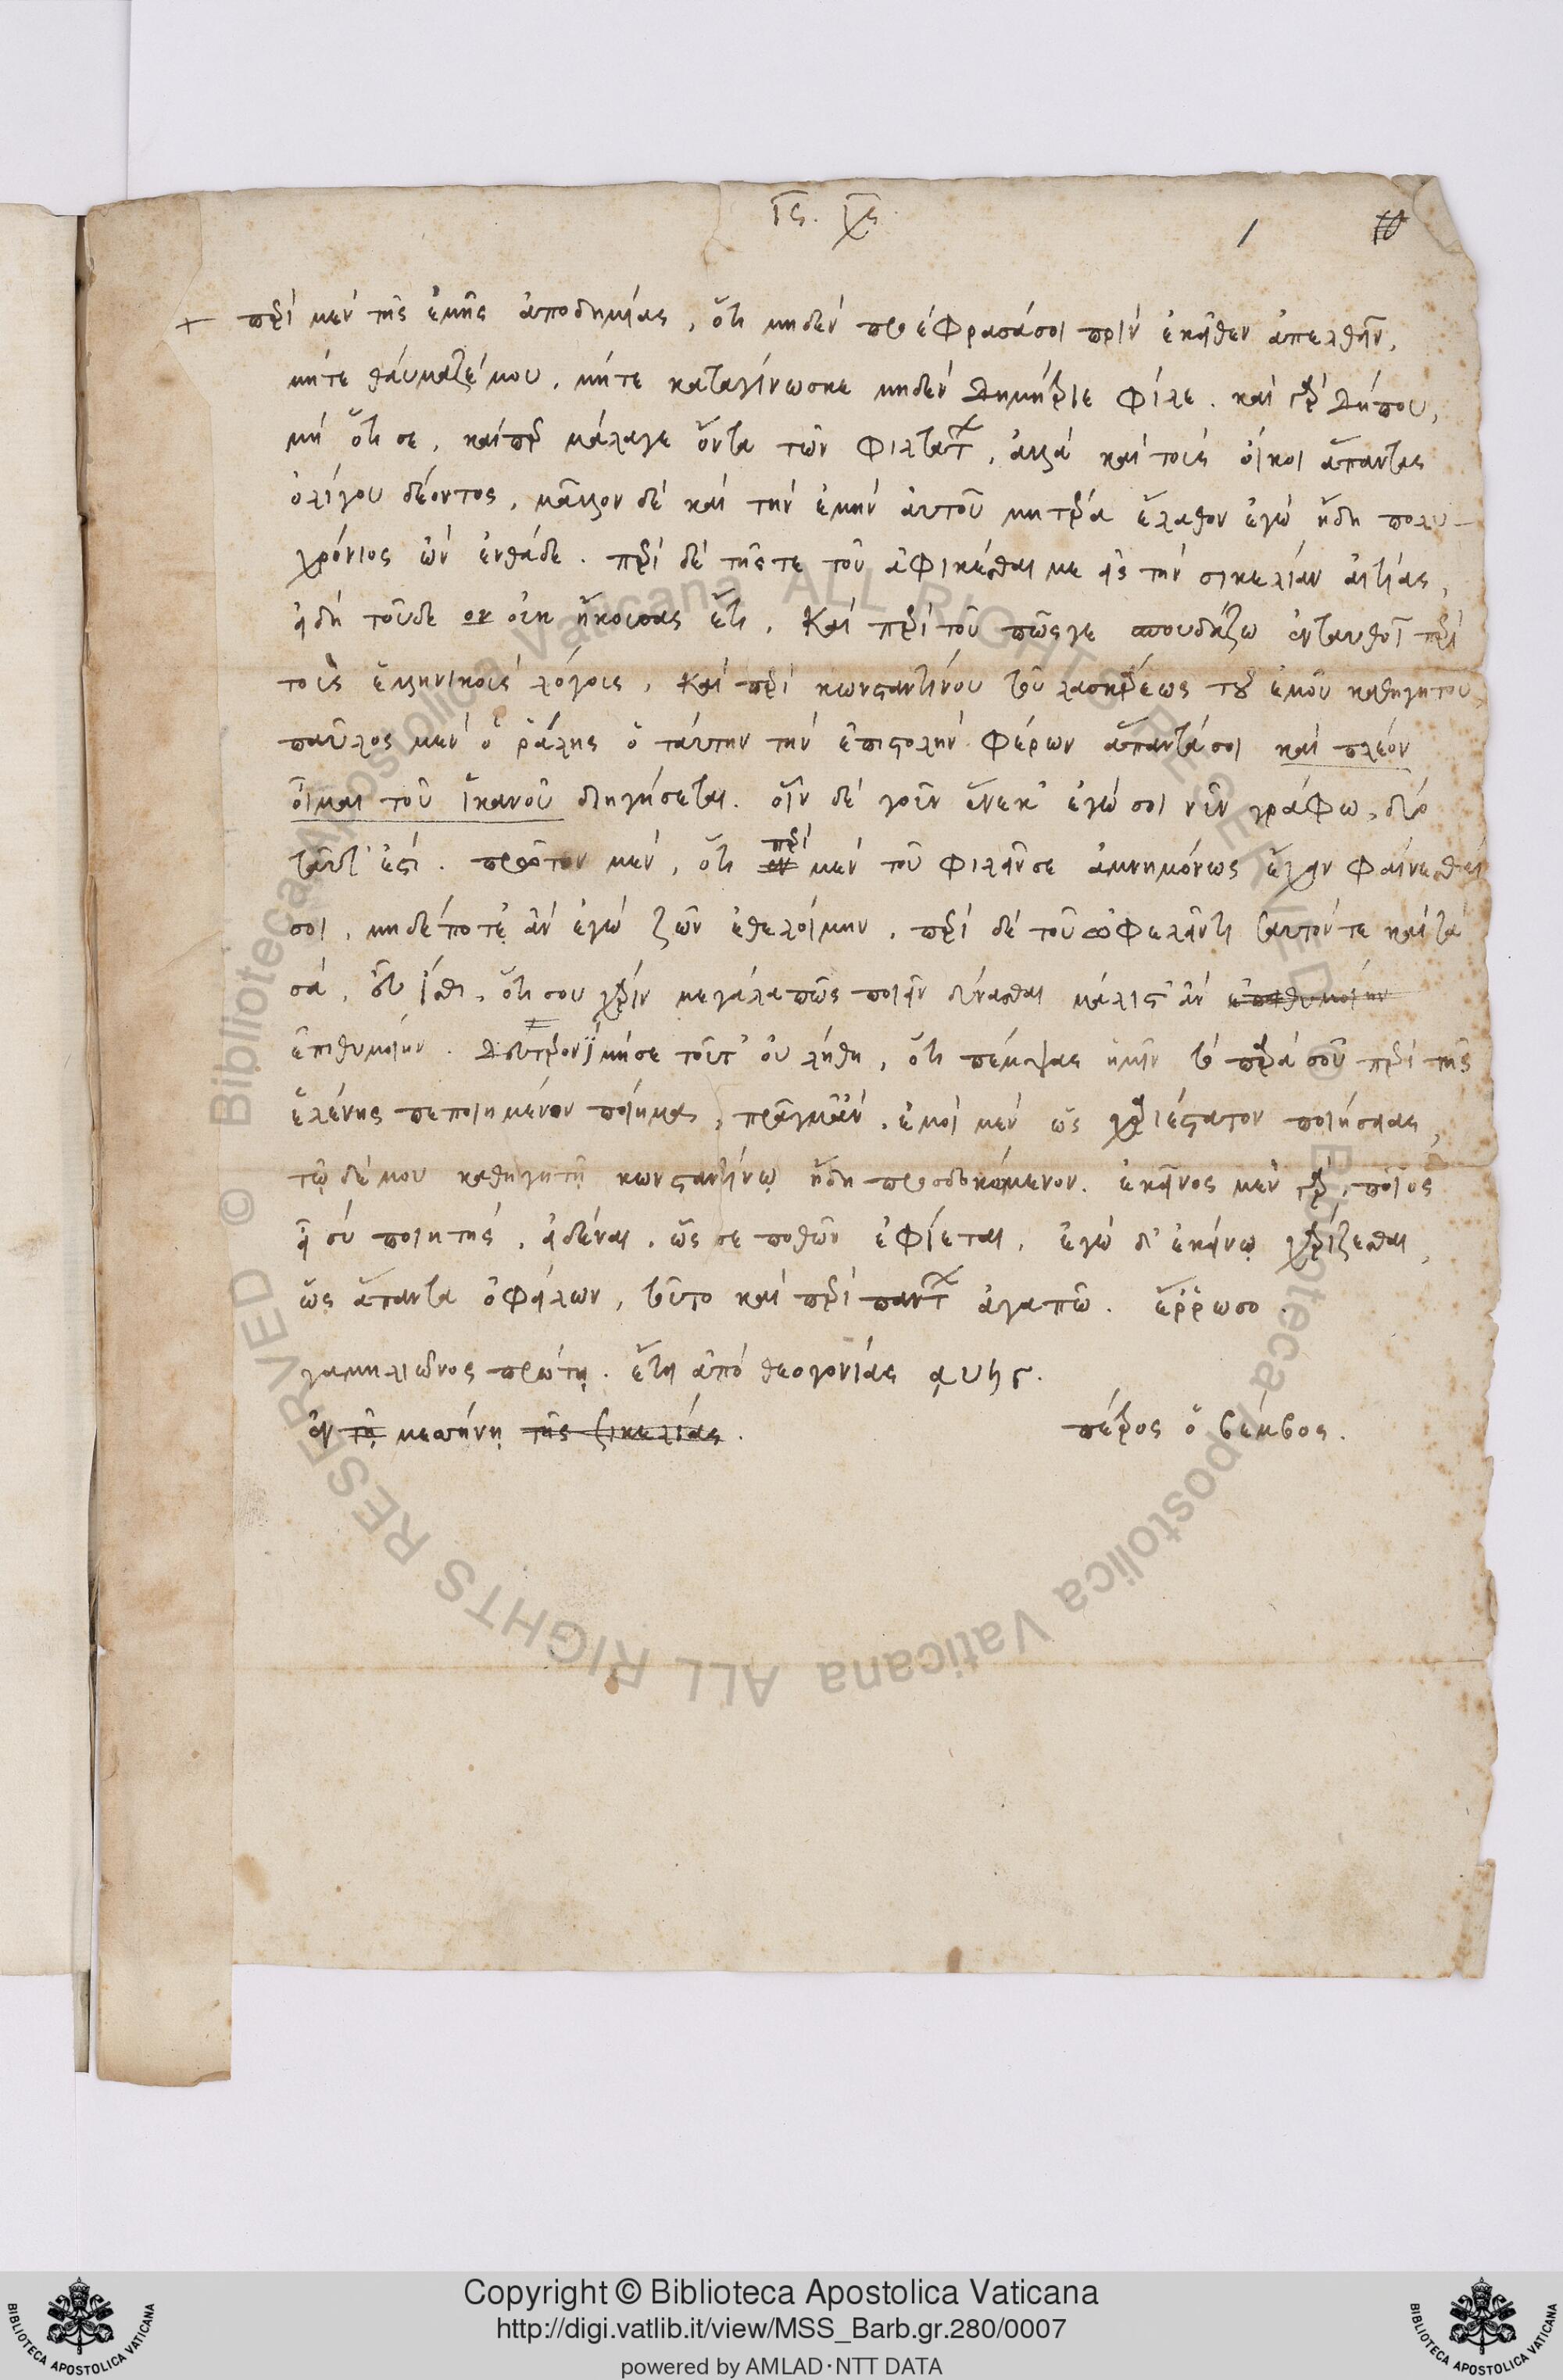 ΙC. ΧC.
1
περὶ μὲν τῆς ἐμῆς ἀποδημίας, ὅτι μηδὲν προέφρασά σοι πρὶν ἐκεῖθεν ἀπελθεῖν,
μήτε θαύμαζέ μου, μήτε καταγίνωσκε μηδὲν Δημήτριε φίλε. καὶ γὰρ δήπου,
μὴ ὅτι σε, καίπερ μάλαγε ὄντα τῶν φιλτάτων, ἀλλὰ καὶ τοὺς οἴκοι ἅπαντας
ὀλίγου δέοντος, μᾶλλον δὲ καὶ τὴν ἐμὴν αὐτοῦ μητέρα ἔλαθον ἐγὼ ἤδη πολυ-
χρόνιος ὢν ἐνθάδε. περὶ δὲ τῆς τε τοῦ ἀφικέσθαι με εἰς τὴν σικελίαν αἰτίας,
εἰ δὴ τοῦδε οκ οὐκ ἤκουσας ἔτι, καὶ περὶ τοῦ πῶς γε σπουδάζω ἐνταυθοῖ περὶ
τοῖς ἑλληνικοῖς λόγοις, καὶ περὶ κωνσταντίνου τοῦ λασκάρεως τοῦ ἐμοῦ καθηγητοῦ,
παῦλος μὲν ὁ ῥάλης ὁ ταύτην τὴν ἐπιστολὴν φέρων ἅπαντά σοι καὶ πλέον
οἶμαι τοῦ ἱκανοῦ διηγήσεται. ὧν δὲ γοῦν ἕνεκ' ἐγώ σοι νῦν γράφω, δύο
ταῦτ' ἐστί. πρῶτον μὲν, ὅτι περὶ μὲν τοῦ φιλεῖν σε ἀμνημόνως ἔχειν φαίνεσθαί
σοι, μηδέποτε ἂν ἐγὼ ζῶν ἐθελοίμην, περὶ δὲ τοῦ ὠφελεῖν τι ταυτόν τε καὶ τὰ
σά, εὖ ἴσθι, ὅτι σου χάριν μεγάλα πῶς ποιεῖν δύνασθαι μάλιστ' ἂν ἐπιθυμοίην
ἐπιθυμοίην. Δεύτερον μή σε τοῦτ' οὖ λήθῃ, ὅτι πέμψας ἡμῖν τὸ παρὰ σοῦ περὶ τῆς
ἑλένης πεποιημένον ποίημα, πρᾶγμ' ἂν, ἐμοὶ μὲν ὡς χαριέστατον ποιήσαις,
τῷ δέ μου καθηγητῇ κωνσταντίνῳ ἤδη προσδοκώμενον. ἐκεῖνος μὲν γὰρ, ποῖος
εἶ σὺ ποιητής, εἰδέναι, ὥς σε ποθῶν ἐφίεται, ἐγὼ δ' ἐκείνῳ χαρίζεσθαι,
ὡς ἅπαντα ὀφείλων, τοῦτο καὶ περὶ παντὸς ἀγαπῶ. ἔῤῥωσο.
γαμηλιῶνος πρώτῃ. ἔτει ἀπὸ θεογονίας αυϟγ.
ἐν τῇ μεσήνῃ τῆς ζικελίας. πέτρος ὁ βέμβος.
© Biblioteca Apostolica Vaticana ALL RIGHTS RESERVED © Biblioteca Apostolica Vaticana ALL RIGHTS RESERVED
Copyright © Biblioteca Apostolica Vaticana
http://digi.vatlib.it/view/MSS_Barb.gr.280/0007
powered by AMLAD·NTT DATA
BIBLIOTECA APOSTOLICA VATICANA
BIBLIOTECA APOSTOLICA VATICANA